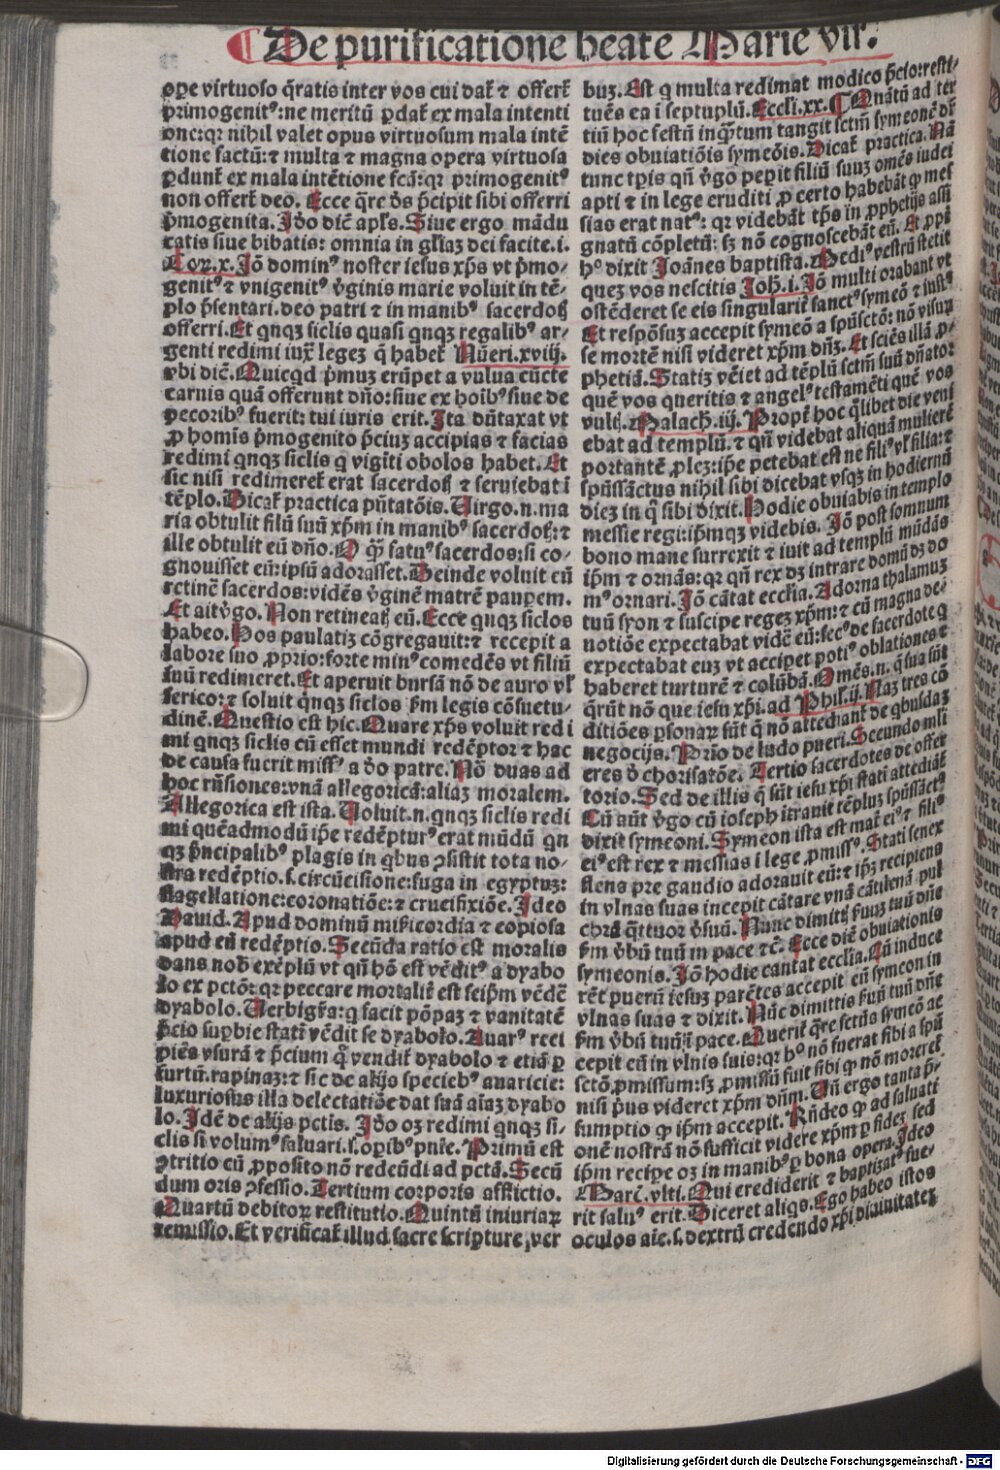 De purificatione beate Marie vir.
ope virtuoso q̄ratis inter vos cui dat᷑ ⁊ offert᷑
primogenitꝰ: ne meritū ꝑdat᷑ ex mala intenti
one: qꝛ nihil valet opus virtuosum mala intē
tione factū: ⁊ multa ⁊ magna opera virtuosa
ꝑdunt᷑ ex mala intētione fcā: qꝛ primogenitꝰ
non offert᷑ deo. Ecce q̄re dn̄s p̄cipit sibi offerri
p̄mogenita. Jdo dic̄ apl's. Siue ergo mādu
catis siue bibatis: omnia in gl'iaꝫ dei facite. i.
Coꝛ. x. Jō dominꝰ noster iesus xp̄s vt p̄mo-
genitꝰ ⁊ vnigenitꝰ v̄ginis marie voluit in tē-
plo p̄sentari. deo patri ⁊ in manibꝰ sacerdoꝭ
offerri. Et qnqꝫ siclis quasi qnqꝫ regalibꝰ ar-
genti redimi iux̄ legeꝫ q̄ habet᷑ Nūeri. xviij.
vbi dic̄. Quicqd p̄muꝫ erūpet a vulua cūcte
carnis quā offerunt dn̄o: siue ex hoīb' siue de
pecoribꝰ fuerit: tui iuris erit. Jta dūtaxat vt
ꝓ homīs p̄mogenito p̄ciuꝫ accipias ⁊ facias
redimi qnqꝫ siclis q viginti obolos habet. Et
sic nisi redimeret᷑ erat sacerdoꝭ ⁊ seruiebat i
tēplo. Dicat᷑ practica pn̄tatōis. Uirgo. n. ma
ria obtulit filiū suū xp̄m in manibꝰ sacerdoꝭ: ⁊
ille obtulit eū dn̄o. O q̄ fatuꝰ sacerdos: si co-
gnouisset eū: ipsū adorasset. Deinde voluit eū
retinē sacerdos: vidēs v̄ginē matrē pauꝑem.
Et ait v̄go. Non retineatꝭ eū. Ecce qnqꝫ siclos
habeo. Hos paulatiꝫ cōgregauit: ⁊ recepit a
labore suo ꝓprio: forte minꝰ comedēs vt filiū
suū redimeret. Et aperuit bursā nō de auro vl'
serico: ⁊ soluit qnqꝫ siclos p̄m legis cōsuetu-
dinē. Questio est hic. Quare xp̄s voluit redi
mi qnqꝫ siclis cū esset mundi redēptor ⁊ hac
de causa fuerit missꝰ a do patre. Rō duas ad
hoc rn̄siones: vnā allegoricā: aliaꝫ moralem.
Allegorica est ista. Uoluit. n. qnqꝫ siclis redi
mi quēadmodū ip̄e redēpturꝰ erat mūdū qn
qꝫ p̄ncipalibꝰ plagis in qbus ꝯsistit tota no-
stra redēptio. s. circūcisione: fuga in egyptuꝫ:
flagellatione: coronatiōe: ⁊ crucifixiōe. Jdeo
Dauid. Apud dominū mīscordia ⁊ copiosa
apud eū redēptio. Secūda ratio est moralis
dans nob exēplū vt qn̄ hō est vēditꝰ a dyabo
lo ex pctō: qꝛ peccare mortalit᷑ est seip̄m vēdē
dyabolo. Uerbigr̄a: q facit pōpaꝫ ⁊ vanitatē
p̄cio suꝑbie statī vēdit se dyabolo. Auarꝰ reci
piēs vsurā ⁊ p̄cium q̄ vendit dyabolo ⁊ etiā ꝑ
furtū. rapinaꝫ: ⁊ sic de alijs speciebꝰ auaricie:
luxuriosus illa delectatiōe dat suā aīaꝫ dyabo
lo. Jdē de alijs pctīs. Jdo oꝫ redimi qnqꝫ si-
clis si volumꝰ saluari. s. oꝑibꝰ pn̄ie. Primū est
ꝯtritio cū ꝓposito nō redeūdi ad pctā. Secū
dum oris ꝯfessio. Tertium corporis afflictio.
Quartū debitoꝝ restitutio. Quintū iniuriaꝝ
remissio. Et verificat᷑ illud sacre scripture, ver
buꝫ. Est q multa redimat modico p̄cio: resti-
tuēs ea i septuplū. Eccli. xx. ¶ Quātū ad ter
tiū hoc festū inq̄tum tangit sctm̄ symeonē dr̄
dies obuiatiōis symeōis. Dicat᷑ practica. Nā
tunc tꝑis qn̄ v̄go peꝑit filiū suuꝫ omēs iudei
apti ⁊ in lege eruditi ꝓ certo habebāt ꝙ mes
sias erat natꝰ: qꝛ videbāt tp̄s in ꝓphetijs assi
gnatū cōpletū: sꝫ nō cognoscebāt eū. Et ꝓpt̄
hꝰ dixit Joānes baptista. Mediꝰ vestrū stetit
queꝫ vos nescitis Joh̄. i. Jō multi orabant vt
ostēderet se eis singularit᷑ sanctꝰ symeō ⁊ iustꝰ
Et respōsuꝫ accepit symeō a spūsctō: nō visuꝝ
se mortē nisi videret xp̄m dn̄ꝫ. Et sciēs illā ꝓ-
phetiā. Statiꝫ vēiet ad tēplū sctm̄ suū dn̄ator
quē vos queritis ⁊ angelꝰ testamēti quē vos
vultꝭ. Malach̄. iij. Propt᷑ hoc q̄libet die veni
ebat ad templū. ⁊ qn̄ videbat aliquā mulierē
portantē ꝓleꝫ: ip̄e petebat est ne filiꝰ vl' filia: ⁊
spūssāctus nihil sibi dicebat vsqꝫ in hodiernū
dieꝫ in q̄ sibi dixit. Hodie obuiabis in templo
messie regi: ip̄mqꝫ videbis. Jō post somnum
bono mane surrexit ⁊ iuit ad templū mūdās
ip̄m ⁊ ornās: qꝛ qn̄ rex dꝫ intrare domū dꝫ do
mꝰ ornari. Jō cātat ecclīa. Adorna thalamuꝫ
tuū syon ⁊ suscipe regeꝫ xp̄m: ⁊ cū magna de-
uotiōe expectabat vidē eū: secꝰ de sacerdote q
expectabat euꝫ vt acciꝑet potiꝰ oblationes ⁊
haberet turturē ⁊ colūbā. Omēs. n. q̄ sua sūt
q̄rūt nō que iesu xp̄i. ad Phil'. ij. Naꝫ tres cō
ditiōes ꝑsonaꝝ sūt q̄ nō attēdiant᷑ de qbusdaꝫ
negocijs. Prīo de ludo pueri. Secundo mli
eres d̄ chorisatōe. Tertio sacerdotes de offer
torio. Sed de illis q̄ sūt iesu xp̄i stati attēdiāt᷑
Cū aūt v̄go cū ioseph itrauit tēpluꝫ spūssāctꝰ
dixit symeoni. Symeon ista est mat᷑ eiꝰ ⁊ filiꝰ
eiꝰ est rex ⁊ messias i lege ꝓmissꝰ. Stati senex
flens pre gaudio adorauit eū: ⁊ ip̄ꝫ recipiens
in vlnas suas incepit cātare vnā cātilenā pul
chrā q̄ttuor v̄suū. Nunc dimittꝭ fuuꝫ tuū dn̄e
p̄m v̄bū tuū in pace ⁊c̄. Ecce diē obuiationis
symeonis. Jō hodie cantat ecclīa. Cū induce
rēt puerū iesuꝫ parētes accepit eū symeon in
vlnas suas ⁊ dixit. Nūc dimittis ꝭuū tuū dn̄e
p̄m v̄bū tuū i pace. Querit᷑ q̄re sctūs symeō ac
cepit eū in vlnis suis: qꝛ hꝰ nō fuerat sibi a spū
sctō ꝓmissum: sꝫ ꝓmissū fuit sibi ꝙ nō moreret᷑
nisi p̄us videret xp̄m dn̄m. Un̄ ergo tanta p̄-
sumptio ꝙ ip̄m accepit. Rn̄deo ꝙ ad saluati
onē nostrā nō sufficit videre xp̄m ꝑ fideꝫ sed
ip̄m recipe oꝫ in manibꝰ ꝑ bona opera. Jdeo
Marc̄. vlti. Qui crediderit ⁊ baptizatꝰ fue-
rit saluꝰ erit. Diceret aliqs. Ego habeo istos
oculos aīe. s. dextrū credendo xp̄i diuinitateꝫ
Digitalisierung gefördert durch die Deutsche Forschungsgemeinschaft - DFG